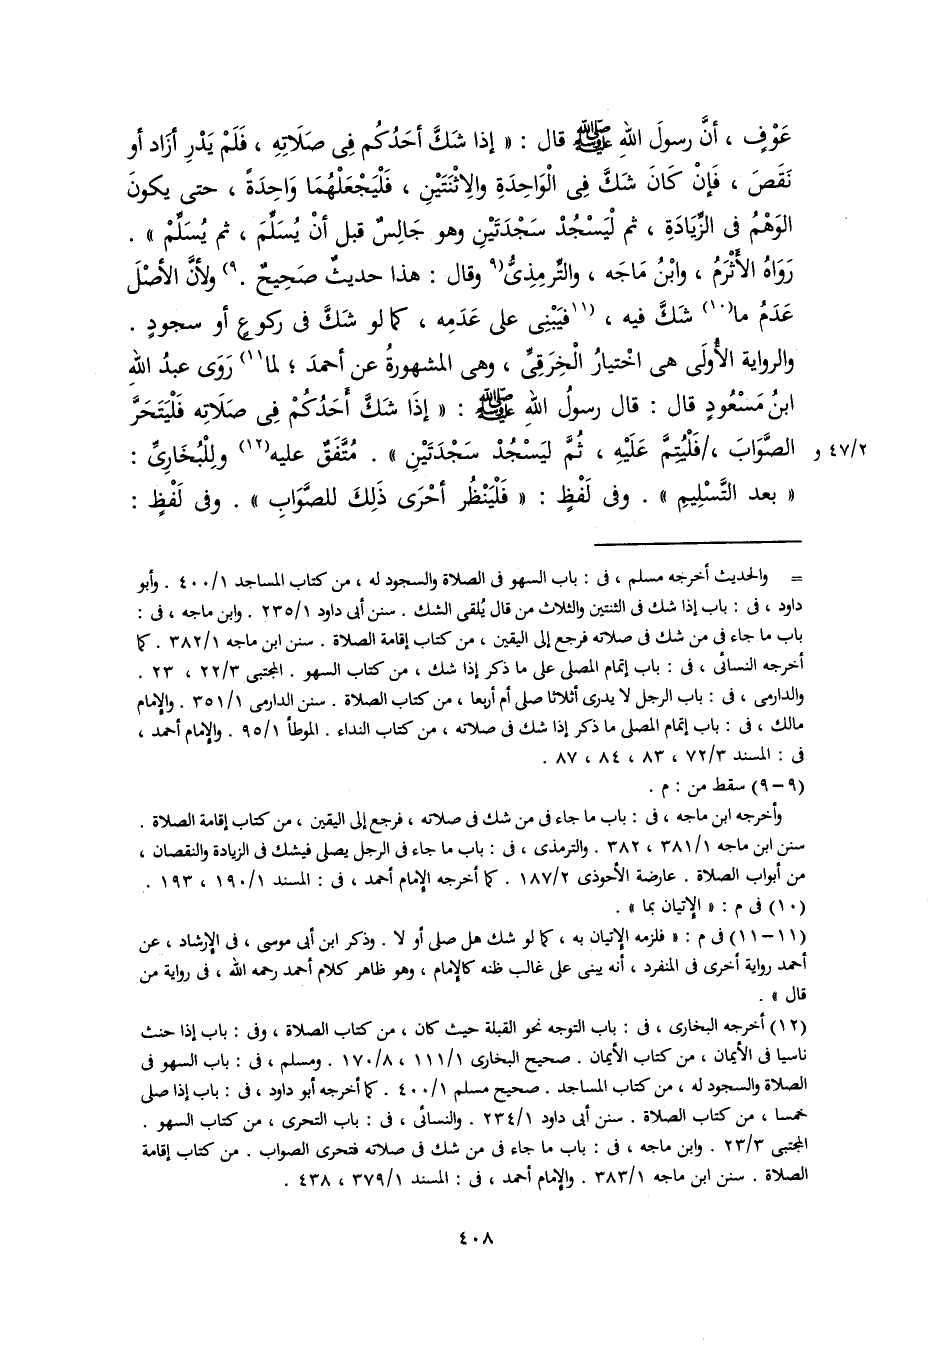 عَوْفٍ ، أنَّ رسولَ اللهِ ﷺ قال : « إذا شَكَّ أحَدُكُم فِى صَلَاتِهِ ، فَلَمْ يَدْرِ أزَاد أو
نَقَصَ ، فَإنْ كَانَ شَكَّ فِى الْوَاحِدَةِ والِاثْنَتَيْنِ ، فَلْيَجْعَلْهُمَا وَاحِدَةً ، حتى يكونَ
الوَهْمُ فى الزِّيَادَةِ ، ثم لْيَسْجُدْ سَجْدَتَيْنِ وهو جَالِسٌ قبل أنْ يُسَلِّمَ ، ثم يُسَلِّمْ » .
رَوَاهُ الأَثْرَمُ ، وابْنُ مَاجَه ، والتِّرمِذِىُّ(٩ وقال : هذا حديثٌ صَحِيحٌ .٩) ولأنَّ الأصْلَ
عَدَمُ ما(١٠) شَكَّ فيه ، (١١فيَبْنِى على عَدَمِه ، كما لو شَكَّ فى ركوعٍ أو سجودٍ .
والرواية الأُولَى هى اخْتيارُ الْخِرَقِىِّ ، وهى المشهورةُ عن أحمدَ ؛ لما١١) رَوَى عبدُ اللهِ
ابنُ مَسْعُودٍ قال : قال رسولُ اللهِ ﷺ : « إذَا شَكَّ أَحَدُكُمْ فِى صَلَاتِه فَلْيَتَحَرَّ
الصَّوَابَ ،/فَلْيُتِمَّ عَلَيْهِ ، ثُمَّ لْيَسْجُدْ سَجْدَتَيْنِ » . مُتَّفَقٌ عليه(١٢) ولِلْبُخَارِىِّ :
٤٧/٢ و
« بعد التَّسْلِيمِ » . وفى لَفْظٍ : « فَلْيَنْظُر أحْرَى ذَلِكَ للصَّوَابِ » . وفى لَفْظٍ :
= والحديث أخرجه مسلم ، فى : باب السهو فى الصلاة والسجود له ، من كتاب المساجد ٤٠٠/١ . وأبو
داود ، فى : باب إذا شك فى الثنتين والثلاث من قال يُلقى الشك . سنن أبى داود ٢٣٥/١ . وابن ماجه ، فى :
باب ما جاء فى من شك فى صلاته فرجع إلى اليقين ، من كتاب إقامة الصلاة . سنن ابن ماجه ٣٨٢/١ . كما
أخرجه النسائى ، فى : باب إتمام المصلى على ما ذكر إذا شك ، من كتاب السهو . المجتبى ٢٢/٣ ، ٢٣ .
والدارمى ، فى : باب الرجل لا يدرى أثلاثا صلى أم أربعا ، من كتاب الصلاة . سنن الدارمى ٣٥١/١ . والإمام
مالك ، فى : باب إتمام المصلى ما ذكر إذا شك فى صلاته ، من كتاب النداء . الموطأ ٩٥/١ . والإمام أحمد ،
فى : المسند ٧٢/٣ ، ٨٣ ، ٨٤ ، ٨٧ .
(٩-٩) سقط من : م .
وأخرجه ابن ماجه ، فى : باب ما جاء فى من شك فى صلاته ، فرجع إلى اليقين ، من كتاب إقامة الصلاة .
سنن ابن ماجه ٣٨١/١ ، ٣٨٢ . والترمذى ، فى : باب ما جاء فى الرجل يصلى فيشك فى الزيادة والنقصان ،
من أبواب الصلاة . عارضة الأحوذى ١٨٧/٢ . كما أخرجه الإمام أحمد ، فى : المسند ١٩٠/١ ، ١٩٣ .
(١٠) فى م : « الإتيان بما » .
(١١-١١) فى م : « فلزمه الإتيان به ، كما لو شك هل صلى أو لا . وذكر ابن أبى موسى ، فى الإرشاد ، عن
أحمد رواية أخرى فى المنفرد ، أنه يبنى على غالب ظنه كالإمام ، وهو ظاهر كلام أحمد رحمه الله ، فى رواية من
قال » .
(١٢) أخرجه البخارى ، فى : باب التوجه نحو القبلة حيث كان ، من كتاب الصلاة ، وفى : باب إذا حنث
ناسيا فى الأيمان ، من كتاب الأيمان . صحيح البخارى ١١١/١ ، ١٧٠/٨ . ومسلم ، فى : باب السهو فى
الصلاة والسجود له ، من كتاب المساجد . صحيح مسلم ٤٠٠/١ . كما أخرجه أبو داود ، فى : باب إذا صلى
خمسا ، من كتاب الصلاة . سنن أبى داود ٢٣٤/١ . والنسائى ، فى : باب التحرى ، من كتاب السهو .
المجتبى ٢٣/٣ . وابن ماجه ، فى : باب ما جاء فى من شك فى صلاته فتحرى الصواب . من كتاب إقامة
الصلاة . سنن ابن ماجه ٣٨٣/١ . والإمام أحمد ، فى : المسند ٣٧٩/١ ، ٤٣٨ .
٤٠٨